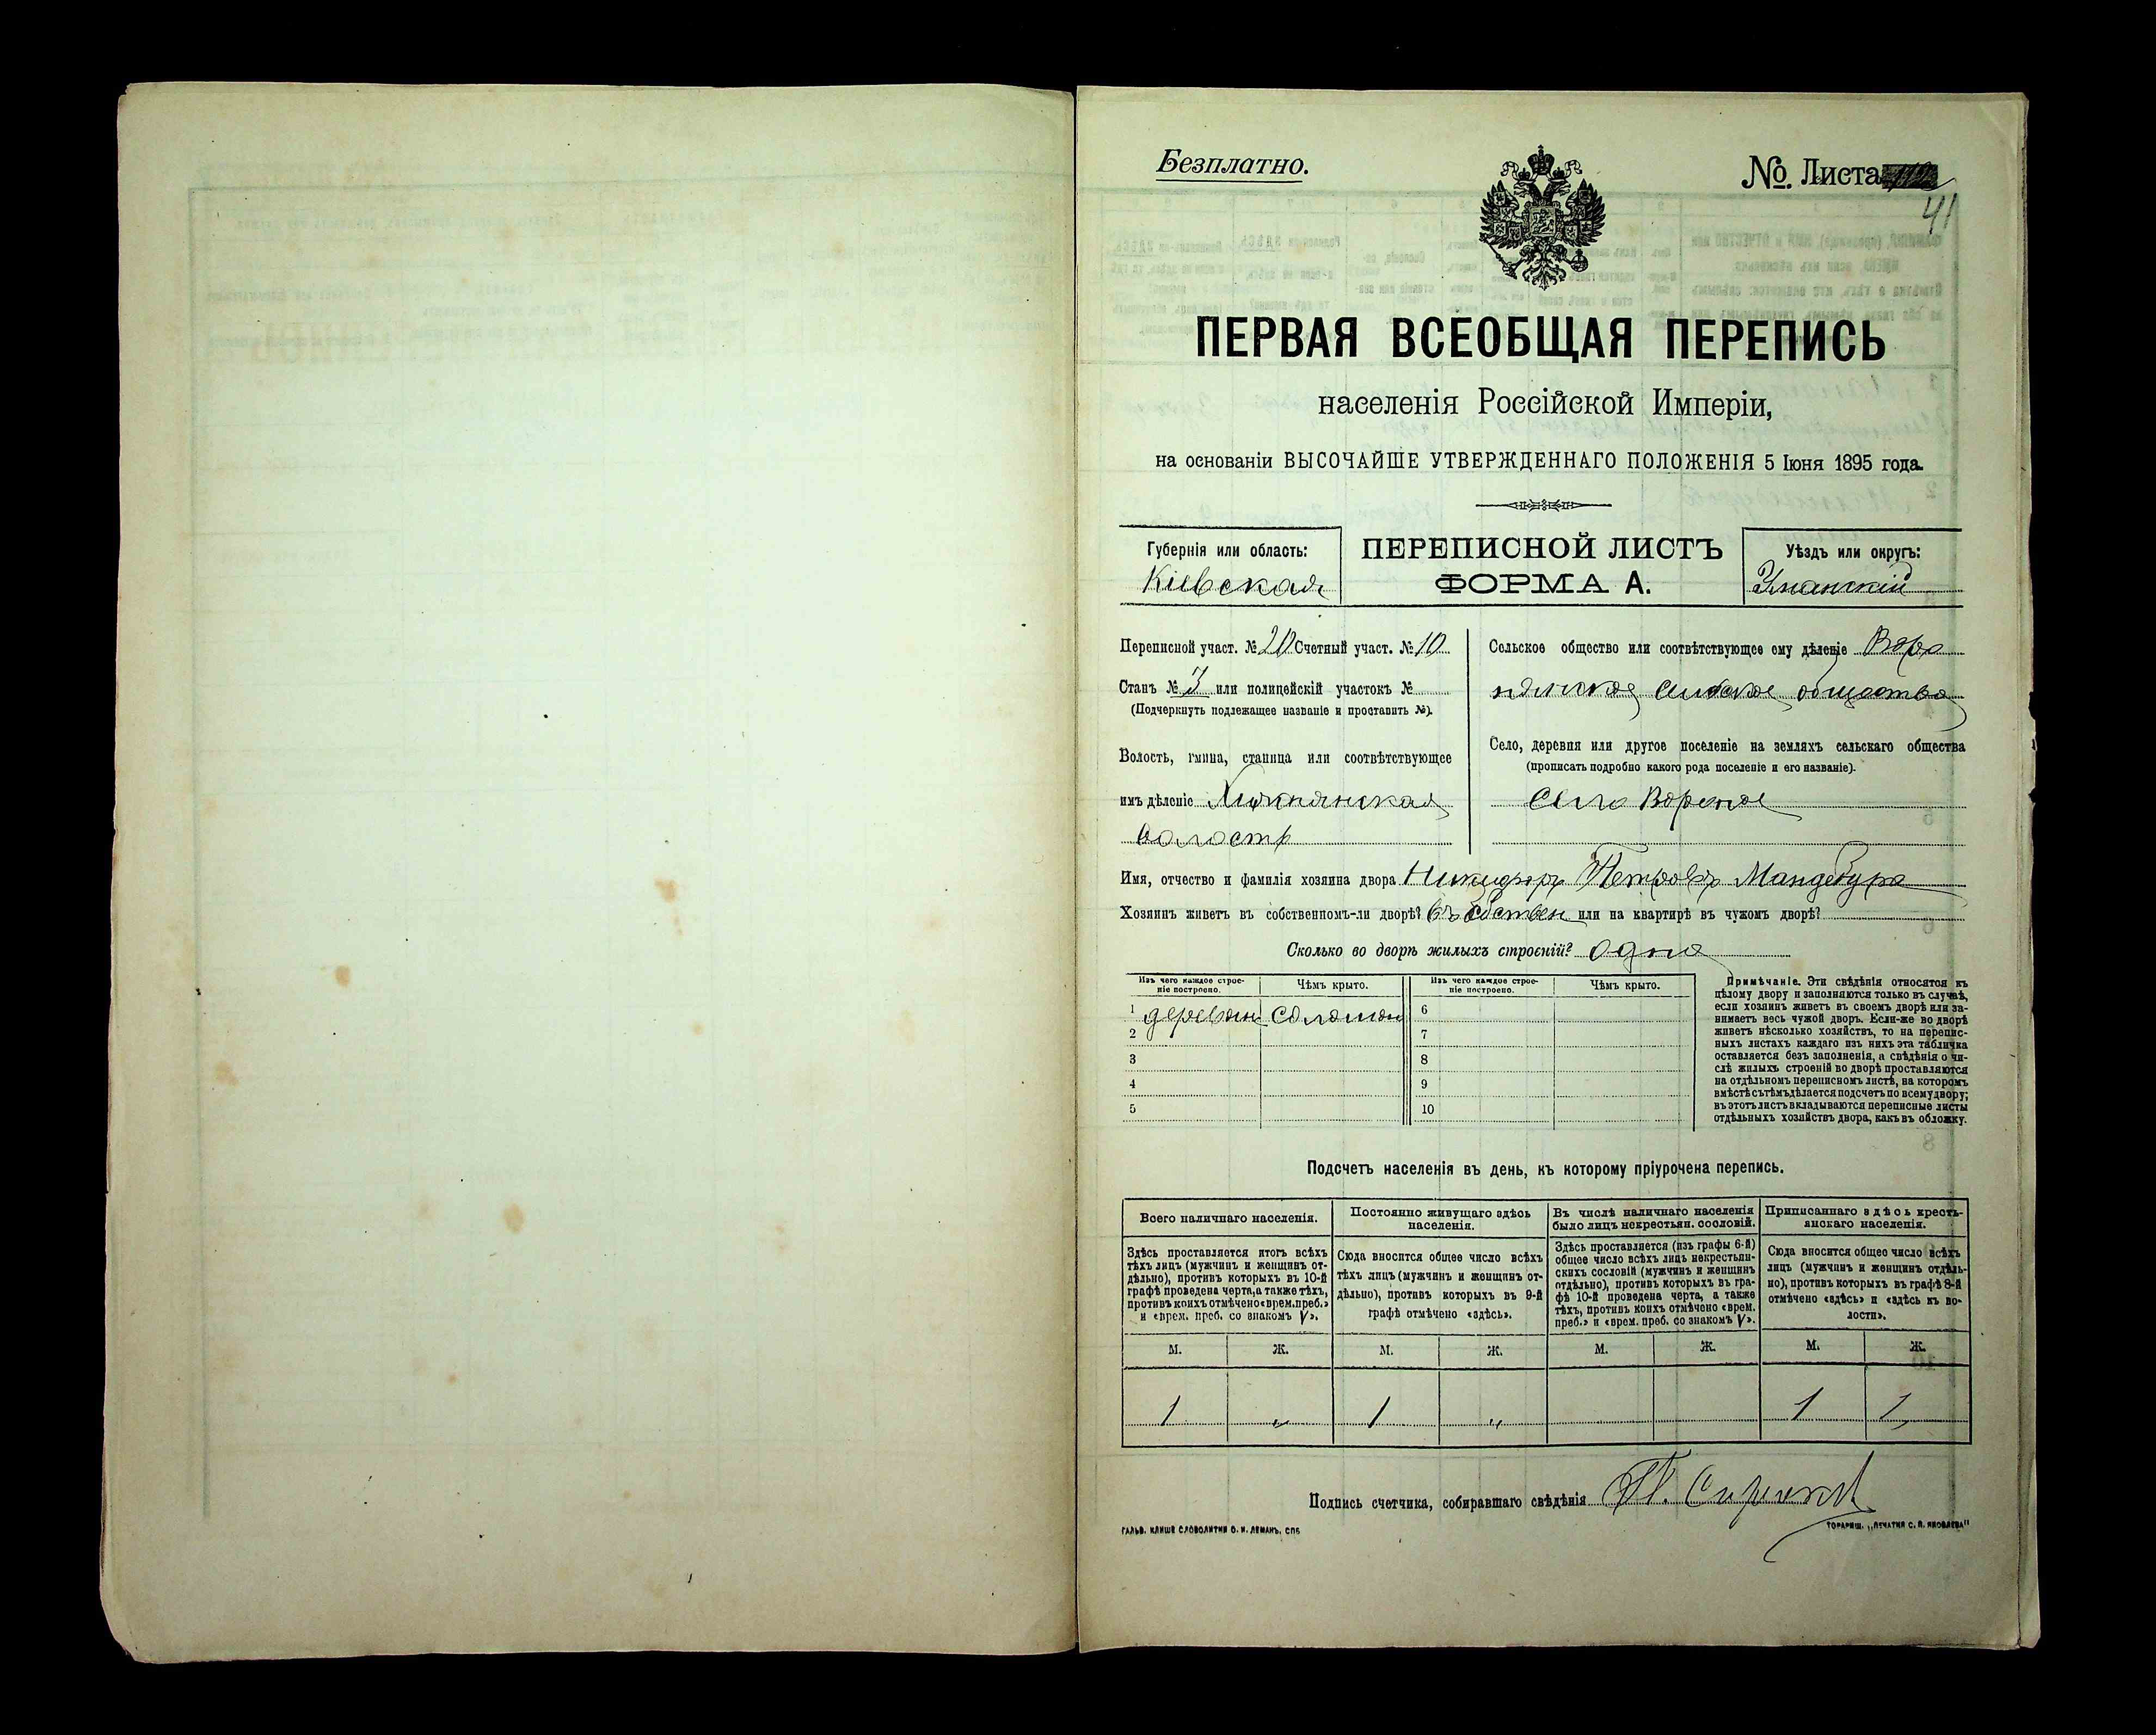 Безплатно.
№. Листа
41
ПЕРВАЯ ВСЕОБЩАЯ ПЕРЕПИСЬ
населенія Россійской Имперіи,
на основаніи ВЫСОЧАЙШЕ УТВЕРЖДЕННАГО ПОЛОЖЕНІЯ 5 Іюня 1895 года.
Губернія или область:
Кіевская
ПЕРЕПИСНОЙ ЛИСТЪ
ФОРМА А.
Уѣздъ или округъ:
Уманскій
Переписной участ. № 20 Счетный участ. № 10
Станъ № 3 или полицейскій участокъ №
(Подчеркнуть подлежащее названіе и проставить №).
Волость, гмина, станица или соотвѣтствующее
имъ дѣленіе
волость
Сельское общество или соотвѣтствующее ему дѣленіе Воро
нянское сельское общество
Село, деревня или другое поселеніе на земляхъ сельскаго общества
(прописать подробно какого рода поселеніе и его названіе).
Село Вороное
Имя, отчество и фамилія хозяина двора Никифоръ Петровъ Мандебура
Хозяинъ живетъ въ собственномъ-ли дворѣ? въ собствен или на квартирѣ въ чужомъ дворѣ?
Сколько во дворѣ жилыхъ строеній? одно
Изъ чего каждое строе-
ніе построено.
Чѣмъ крыто.
Изъ чего каждое строе-
ніе построено.
Чѣмъ крыто.
1 деревян соломой 6
2 7
3 8
4 9
5 10
Примѣчаніе. Эти свѣдѣнія относятся къ
цѣлому двору и заполняются только въ случаѣ,
если хозяинъ живетъ въ своемъ дворѣ или за-
нимаетъ весь чужой дворъ. Если-же во дворѣ
живетъ нѣсколько хозяйствъ, то на перепис-
ныхъ листахъ каждаго изъ нихъ эта табличка
оставляется безъ заполненія, а свѣдѣнія о чи-
слѣ жилыхъ строеній во дворѣ проставляются
на отдѣльномъ переписномъ листѣ, на которомъ
вмѣстѣ съ тѣмъ дѣлается подсчетъ по всему двору;
въ этотъ листъ вкладываются переписные листы
отдѣльныхъ хозяйствъ двора, какъ въ обложку.
Подсчетъ населенія въ день, къ которому пріурочена перепись.
Всего наличнаго населенія.
Здѣсь проставляется итогъ всѣхъ
тѣхъ лицъ (мужчинъ и женщинъ от-
дѣльно), противъ которыхъ въ 10-й
графѣ проведена черта, а также тѣхъ,
противъ коихъ отмѣчено «врем. преб.»
и «врем. преб. со знакомъ V».
Постоянно живущаго здѣсь
населенія.
Сюда вносится общее число всѣхъ
тѣхъ лицъ (мужчинъ и женщинъ от-
дѣльно), противъ которыхъ въ 9-й
графѣ отмѣчено «здѣсь».
Въ числѣ наличнаго населенія
было лицъ некрестьян. сословій.
Здѣсь проставляется (изъ графы 6-й)
общее число всѣхъ лицъ некрестьян-
скихъ сословій (мужчинъ и женщинъ
отдѣльно), противъ которыхъ въ гра-
фѣ 10-й проведена черта, а также
тѣхъ, противъ коихъ отмѣчено «врем.
преб.» и «врем. преб. со знакомъ V».
Приписаннаго здѣсь кресть-
янскаго населенія.
Сюда вносится общее число всѣхъ
лицъ (мужчинъ и женщинъ отдѣль-
но), противъ которыхъ въ графѣ 8-й
отмѣчено «здѣсь» и «здѣсь къ во-
лости».
М. Ж. М. Ж. М. Ж. М. Ж.
1 „ 1 „ 1 1
Подпись счетчика, собиравшаго свѣдѣнія
ГАЛЬВ. КЛИШЕ СЛОВОЛИТНИ О. И. ЛЕМАНЪ, СПБ
ТОВАРИЩ. „ПЕЧАТНЯ С. П. ЯКОВЛЕВА"